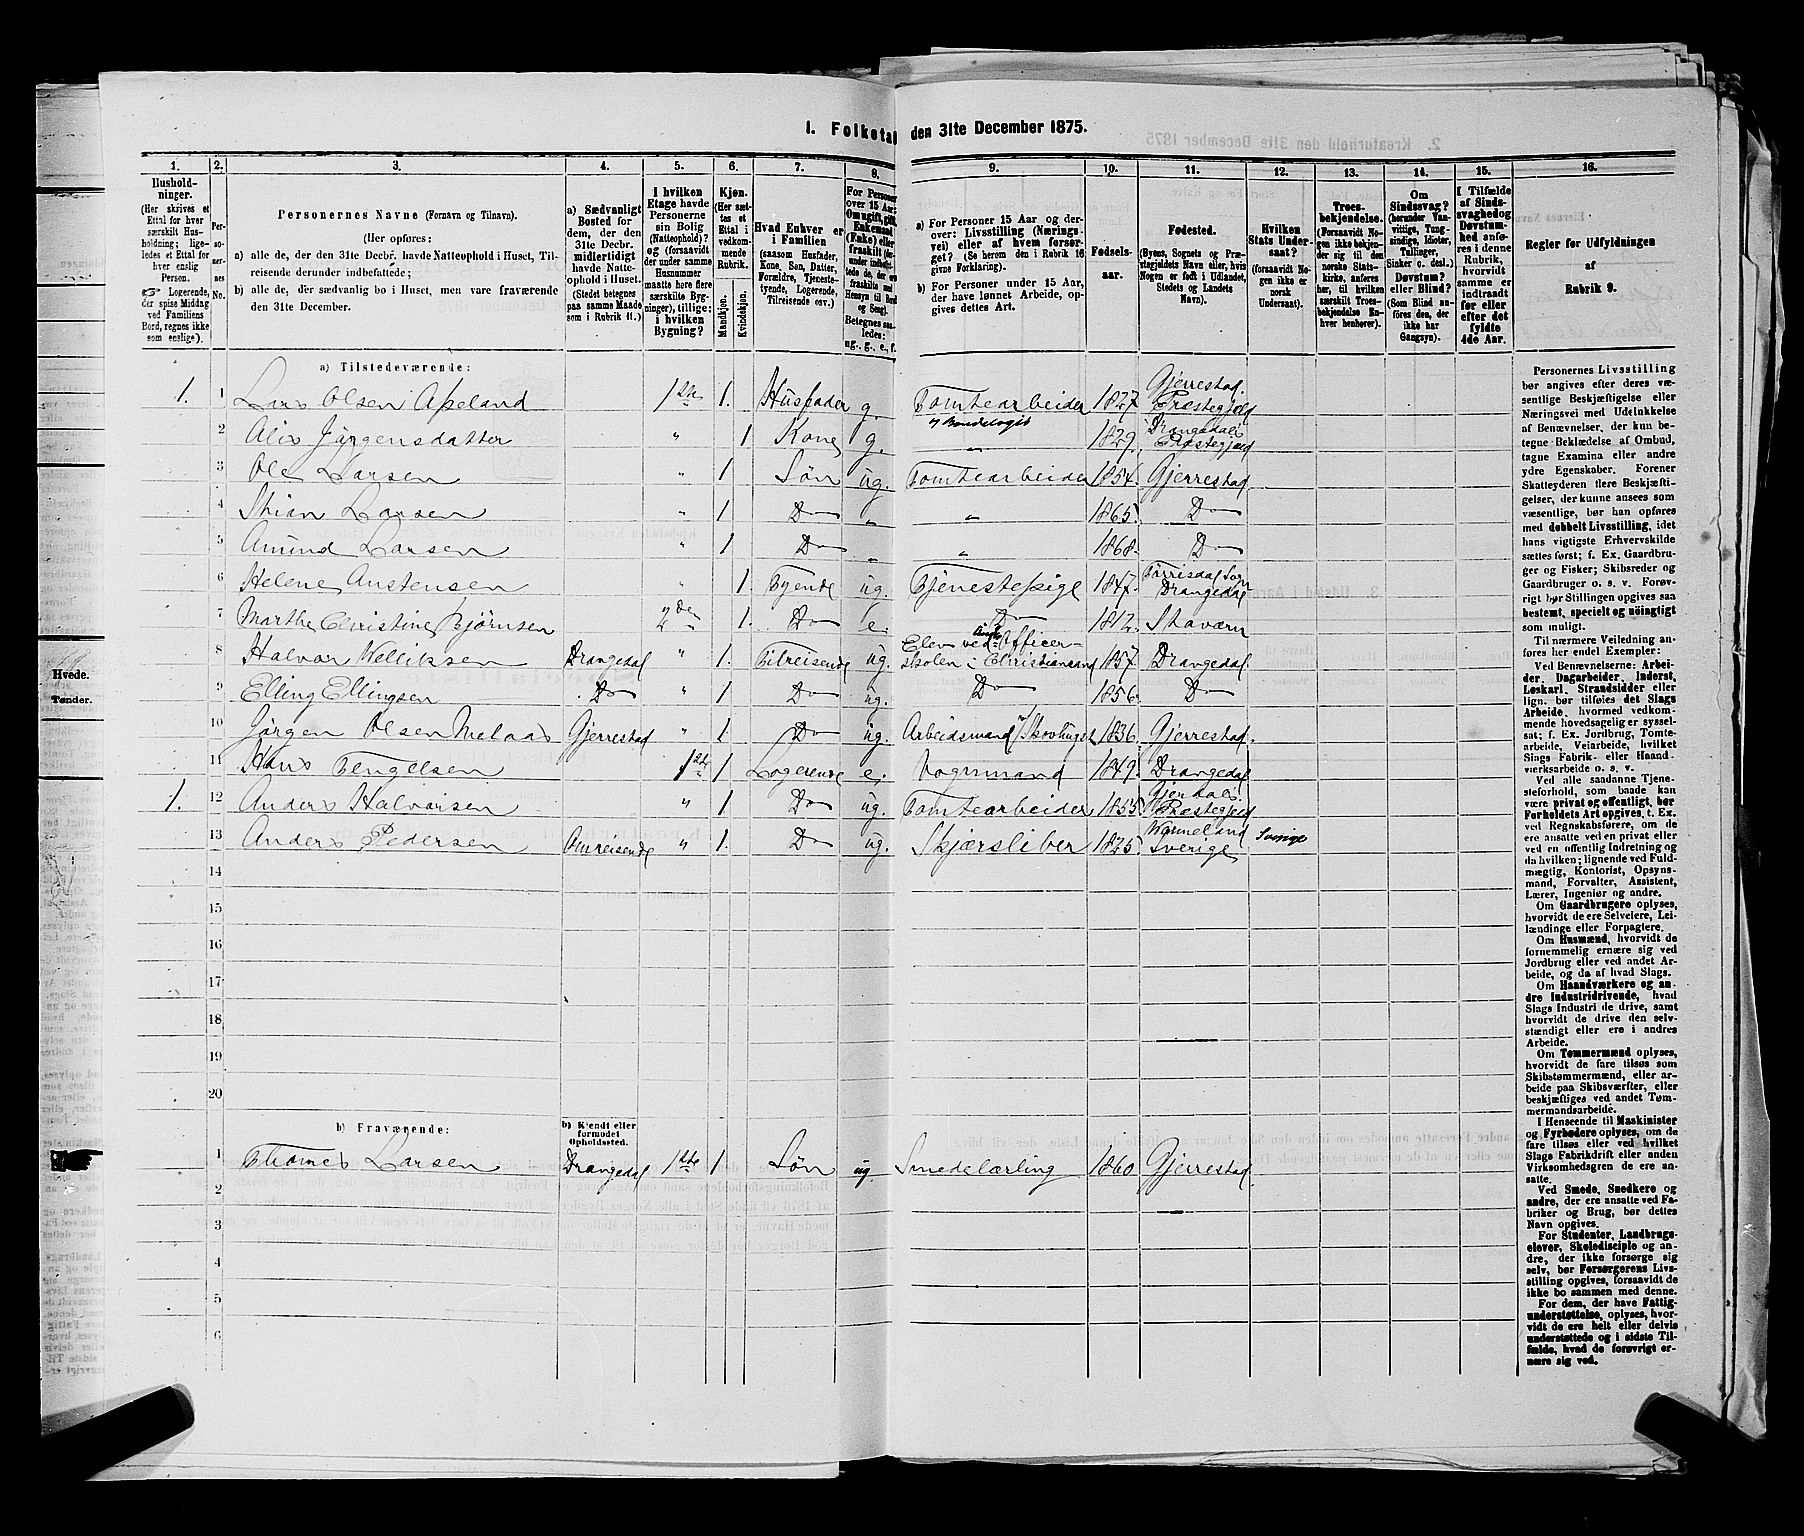 1. Folketal den 31te December 1875.
1. 2. 3. 4. 5. 6. 7. 8. 9. 10. 11. 12. 13. 14. 15. 16.
Husholdninger.
(Her skrives et
Ettal for hver
særskilt Husholdning;
ligeledes
et Ettal for
hver enslig
Person.
Logerende,
der spise Middag
ved Familiens
Bord, regnes ikke
som enslige).
Personernes No.
Personernes Navne (Fornavn og Tilnavn).
(Her opføres:
a) alle de, der den 31te Decbr. havde Natteophold i Huset, Tilreisende derunder indbefattede;
b) alle de, der sædvanlig bo i Huset, men vare fraværende den 31te December.
a) Sædvanligt
Bosted for
dem, der den
31te Decbr.
midlertidigt
havde Natteophold
i Huset.
(Stedet betegnes
paa samme Maade
som i Rubrik 11.)
I hvilken
Etage havde
Personerne
sin Bolig
(Natteophold)?
og (forsaavidt
der under samme
Husnummer
maatte høre flere
særskilte Bygninger),
tillige:
i hvilken
Bygning?
Kjøn.
(Her sættes
et
Ettal i
vedkommende
Rubrik.
Mandkjøn.
Kvindekjøn.
Hvad Enhver er
i Familien
(saasom Husfader,
Kone, Søn, Datter,
Forældre, Tjenestetyende,
Logerende,
Tilreisende osv.)
a) For Personer 15 Aar og derover: Livsstilling (Næringsvei) eller af hvem forsørget? (Se herom den i Rubrik 16 givne Forklaring).
b) For Personer under 15 Aar, der have lønnet Arbeide, opgives dettes Art.
Fødselsaar.
Fødested.
(Byens, Sognets og Præstegjeldets
Navn eller, hvis
Nogen er født i Udlandet,
Stedets og Landets
Navn).
Hvilken
Stats Undersaat?
(forsaavidt Nogen
ikke er
norsk
Undersaat).
Troesbekjendelse.
(Forsaavidt Nogen
ikke bekjender
sig til den
norske Statskirke,
anføres
her, til hvilken
særskilt Troesbekjendelse
Enhver
henhører).
Om
Sindssvag?
(herunder Vanvittige,
Tungsindige,
Idioter,
Tullinger,
Sinker o. desl.)
Døvstum?
eller Blind?
(Som Blind anføres
den, der
ikke har
Gangsyn).
I Tilfælde
af Sindssvaghed
og
Døvstumhed
anføres
i denne
Rubrik,
hvorvidt
samme er
indtraadt
før eller
efter det
fyldte
4de Aar.
Regler for Udfyldningen
af
Rubrik 9.
a) Tilstedeværende:
1. 1 Lars Olsen Aپeland 1ste 1. Husfader g. Tomtearbeider 1827 Gjerrestad Præstegjeld
2 Alis Jørgensdatter " 1 Kone g. " 1829. Drangedals Præstegjeld
3 Ole Larsen " 1 Søn ug. Tomtearbeider 1854. Gjerrestad
4 Stian Larsen " 1 Do " " 1865. Do
5 Amund Larsen " 1 Do " " 1868. Do
6 Helene Austensen " 1. Tyende ug. Tjenestepige 1847. Tørrisdal Sogn Drangedal
7 Marthe Christine Bjørnsen 2den 1. Do e. Do 1812. Staværn
8 Halvor Kelliksen Drangedal " 1. Tilreisende ug. Elev ved Underofficerskolen i Christiansand 1857. Drangedal
9 Elling Ellingsen Do " 1 Do ug. Do 1856. Do
10 Jørgen Olsen Melaas Gjerrestad " 1. Do ug. Arbeidsmand v/ Skovhugst 1836. Gjerrestad.
11 Hans Tengelsen 1ste 1 Logerende e. Vognmand 1849. Drangedal
1. 12 Anders Halvorsen " 1 Do ug. Tomtearbeider 1855. Præstegjeld
13 Anders Pedersen Omreisende " 1. Do ug. Skjærsliber 1825. Wermeland Sverige Sverige
14
15
16
17
18
19
20
b) Fraværende:
b) Kjendt eller
formodet
Opholdssted.
1 Thomes Larsen Drangedal 1ste 1 Søn ug. Smedelærling 1860 Gjerrestad.
2
3
4
5
6
Personernes Livsstilling
bør angives efter deres væsentlige
Beskjæftigelse eller
Næringsvei med Udelukkelse
af Benævnelser, der kun betegne
Beklædelse af Ombud,
tagne Examina eller andre
ydre Egenskaber. Forener
Skatteyderen flere Beskjæftigelser,
der kunne ansees som
væsentlige, bør han opføres
med dobbelt Livsstilling, idet
hans vigtigste Erhvervskilde
sættes først; f. Ex. Gaardbruger
og Fisker; Skibsreder og
Gaardbruger o. s. v. Forøvrigt
bør Stillingen opgives saa
bestemt, specielt og nøiagtigt
som muligt.
Til nærmere Veiledning anføres
her endel Exempler:
Ved Benævnelserne: Arbeider,
Dagarbeider, Inderst,
Løskarl, Strandsidder eller
lign. bør tilføies det Slags
Arbeide, hvormed vedkommende
hovedsagelig er sysselsat;
f. Ex. Jordbrug, Tomtearbeide,
Veiarbeide, hvilket
Slags Fabrik- eller Haandværksarbeide
o. s. v.
Ved alle saadanne Tjenesteforhold,
som baade kan
være privat og offentligt, bør
Forholdets Art opgives, t. Ex.
ved Regnskabsførere, om de
ere ansatte ved en privat eller
ved en offentlig Indretning og
da hvilken; lignende ved Fuldmægtig,
Kontorist, Opsynsmand,
Forvalter, Assistent,
Lærer, Ingeniør og andre.
Om Gaardbrugere oplyses,
hvorvidt de ere Selveiere, Leilændinge
eller Forpagtere.
Om Husmænd, hvorvidt de
fornemmelig ernære sig ved
Jordbrug eller ved andet Arbeide,
og da af hvad Slags.
Om Haandværkere og andre
Industridrivende, hvad
Slags Industri de drive, samt
hvorvidt de drive den selvstændigt
eller ere i andres
Arbeide.
Om Tømmermænd oplyses,
hvorvidt de fare tilsøs som
Skibstømmermænd, eller arbeide
paa Skibsværfter, eller
beskjæftiges ved andet Tømmermandsarbeide.
I Henseende til Maskinister
og Fyrbødere oplyses, om de
fare tilsøs eller ved hvilket
Slags Fabrikdrift eller anden
Virksomhedsgren de ere ansatte.
Ved Smede, Snedkere og
andre, der ere ansatte ved Fabriker
og Brug, bør dettes
Navn opgives.
For Studenter, Landbrugselever,
Skoledisciple og andre,
der ikke forsørge sig
selv, bør Forsørgerens Livsstilling
opgives, forsaavidt de
ikke bo sammen med denne.
For dem, der have Fattigunderstøttelse,
oplyses, hvorvidt
de ere helt eller delvis
understøttede og i sidste Tilfælde,
hvad de forøvrigt ernære
sig ved.
Hvede.
Tønder.